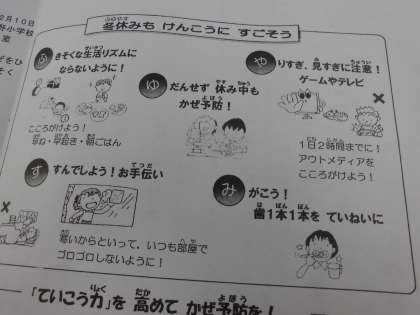 2月10日
小学校
室
ずをひ
そく
冬休みも けんこうに すごそう
ふきそくな生活リズムに
ならないように！
こころがけよう！
早ね・早起き・朝ごはん
ゆだんせず 休み中も
かぜ予防！
やりすぎ、見すぎに注意！
ゲームやテレビ
1日2時間までに！
アウトメディアを
こころがけよう！
すすんでしよう！お手伝い
寒いからといって、いつも部屋で
ゴロゴロしないように！
みがこう！
歯1本1本を ていねいに
「ていこう力」を 高めて かぜ予防を！